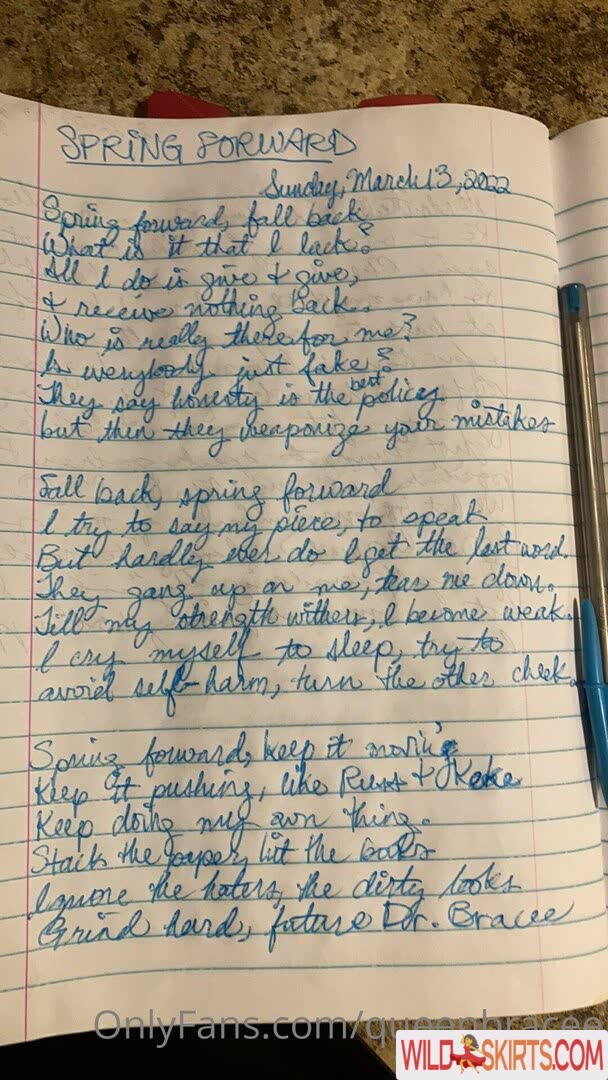 SPRING FORWARD
Sunday, March 13, 2022
Spring forward, fall back
What is it that I lack?
All I do is give & give,
& receive nothing back.
Who is really there for me?
Is everybody just fake?
They say honesty is the best policy
but then they weaponize your mistakes
Fall back, spring forward
I try to say my piece, to speak
But hardly ever do I get the last word.
They gang up on me, tear me down.
Till my strength withers, I become weak.
I cry myself to sleep, try to
avoid self-harm, turn the other cheek.
Spring forward, keep it movin'
Keep it pushing, like Russ & Keke
Keep doing my own thing.
Stack the paper, hit the books
Ignore the haters, the dirty looks
Grind hard, future Dr. Bracee
OnlyFans.com/queenbracee
WILD SKIRTS.COM